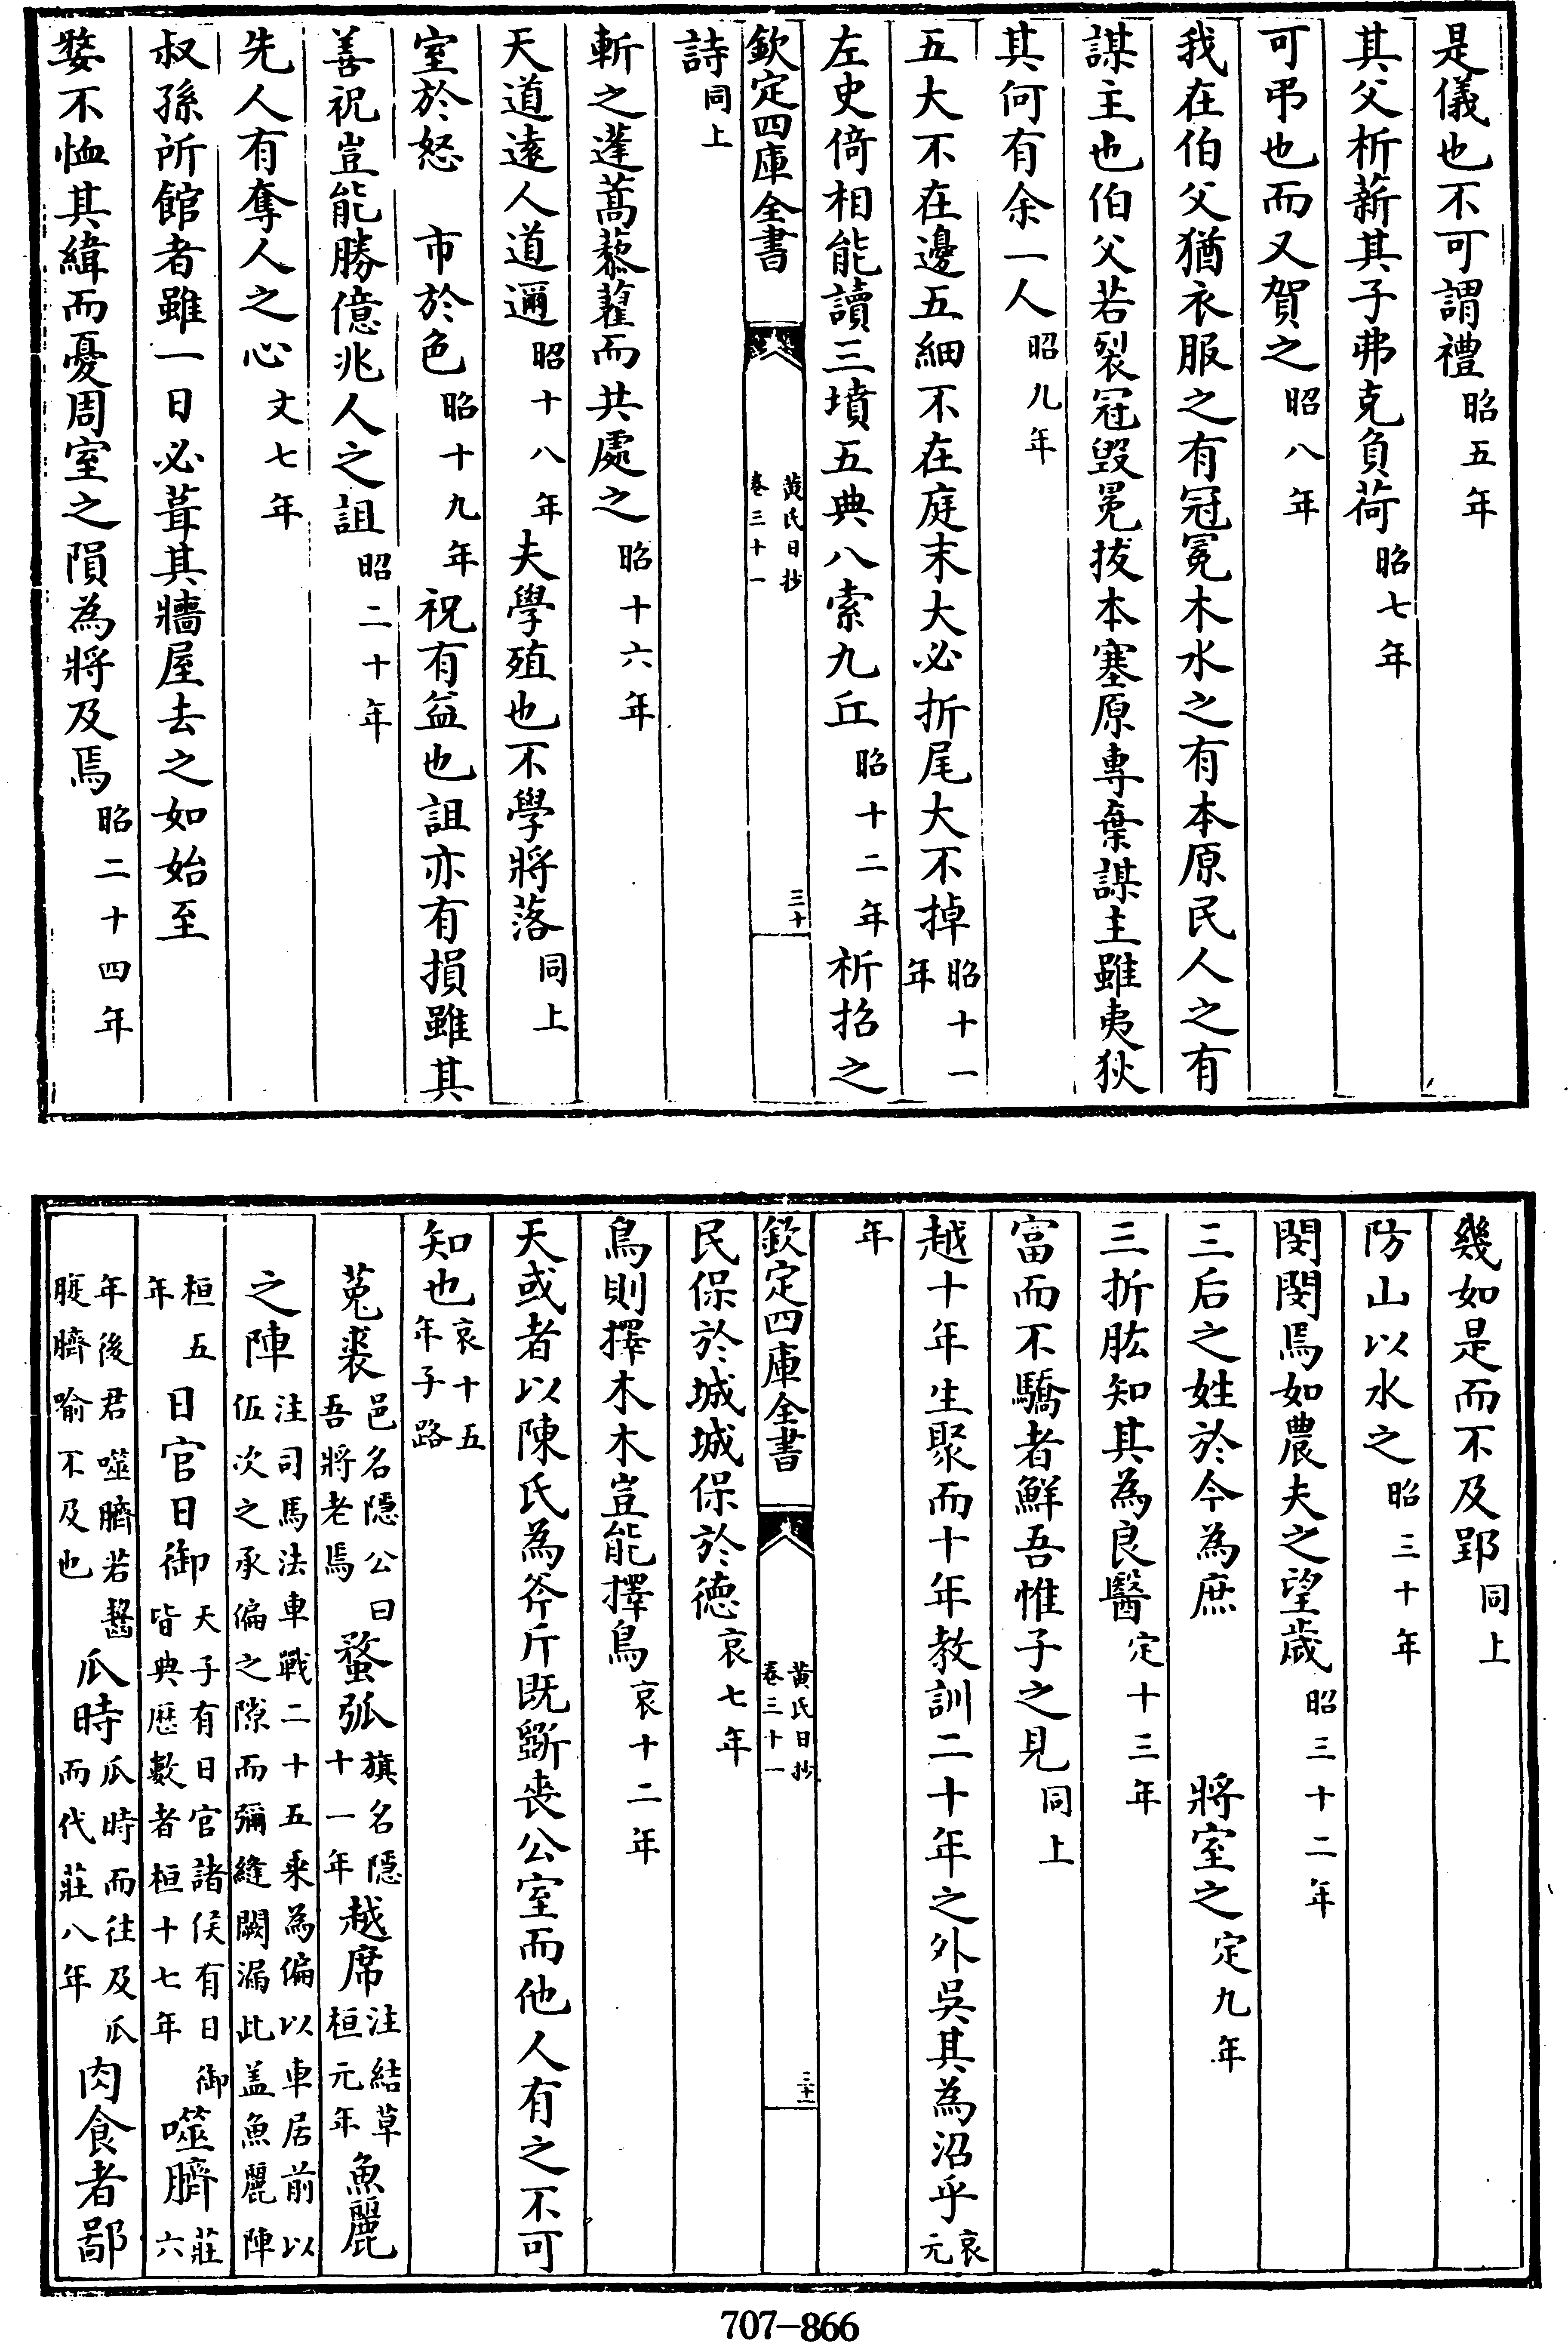 是儀也不可謂禮昭五年
其父析薪其子弗克負荷昭七年
可弔也而又賀之昭八年
我在伯父猶衣服之有冠冕木水之有本原民人之有
謀主也伯父若裂冠毀冕拔本塞原專棄謀主雖夷狄
其何有余一人昭九年
五大不在邊五細不在庭末大必折尾大不掉昭十一年
左史倚相能讀三墳五典八索九丘昭十二年祈招之
欽定四庫全書 黃氏日抄 卷三十一 三十
詩同上
斬之蓬蒿藜藋而共處之昭十六年
天道遠人道邇昭十八年夫學殖也不學將落同上
室於怒 市於色昭十九年祝有益也詛亦有損雖其
善祝豈能勝億兆人之詛昭二十年
先人有奪人之心文七年
叔孫所館者雖一日必葺其牆屋去之如始至
嫠不恤其緯而憂周室之隕為將及焉昭二十四年
幾如是而不及郢同上
防山以水之昭三十年
閔閔焉如農夫之望歲昭三十二年
三后之姓於今為庶 將室之定九年
三折肱知其為良醫定十三年
富而不驕者鮮吾惟子之見同上
越十年生聚而十年教訓二十年之外吳其為沼乎哀元
年
欽定四庫全書 黃氏日抄 卷三十一 三十一
民保於城城保於德哀七年
鳥則擇木木豈能擇鳥哀十二年
天或者以陳氏為斧斤既斲喪公室而他人有之不可
知也哀十五年子路
菟裘邑名隱公曰吾將老焉蝥弧旗名隱十一年越席注結草桓元年魚麗
之陣注司馬法車戰二十五乘為偏以車居前以伍次之承偏之隙而彌縫闕漏此盖魚麗陣
桓五年日官日御天子有日官諸侯有日御皆典歷數者桓十七年噬臍莊六
年後君噬臍若齧腹臍喻不及也瓜時瓜時而往及瓜而代莊八年肉食者鄙
707-866